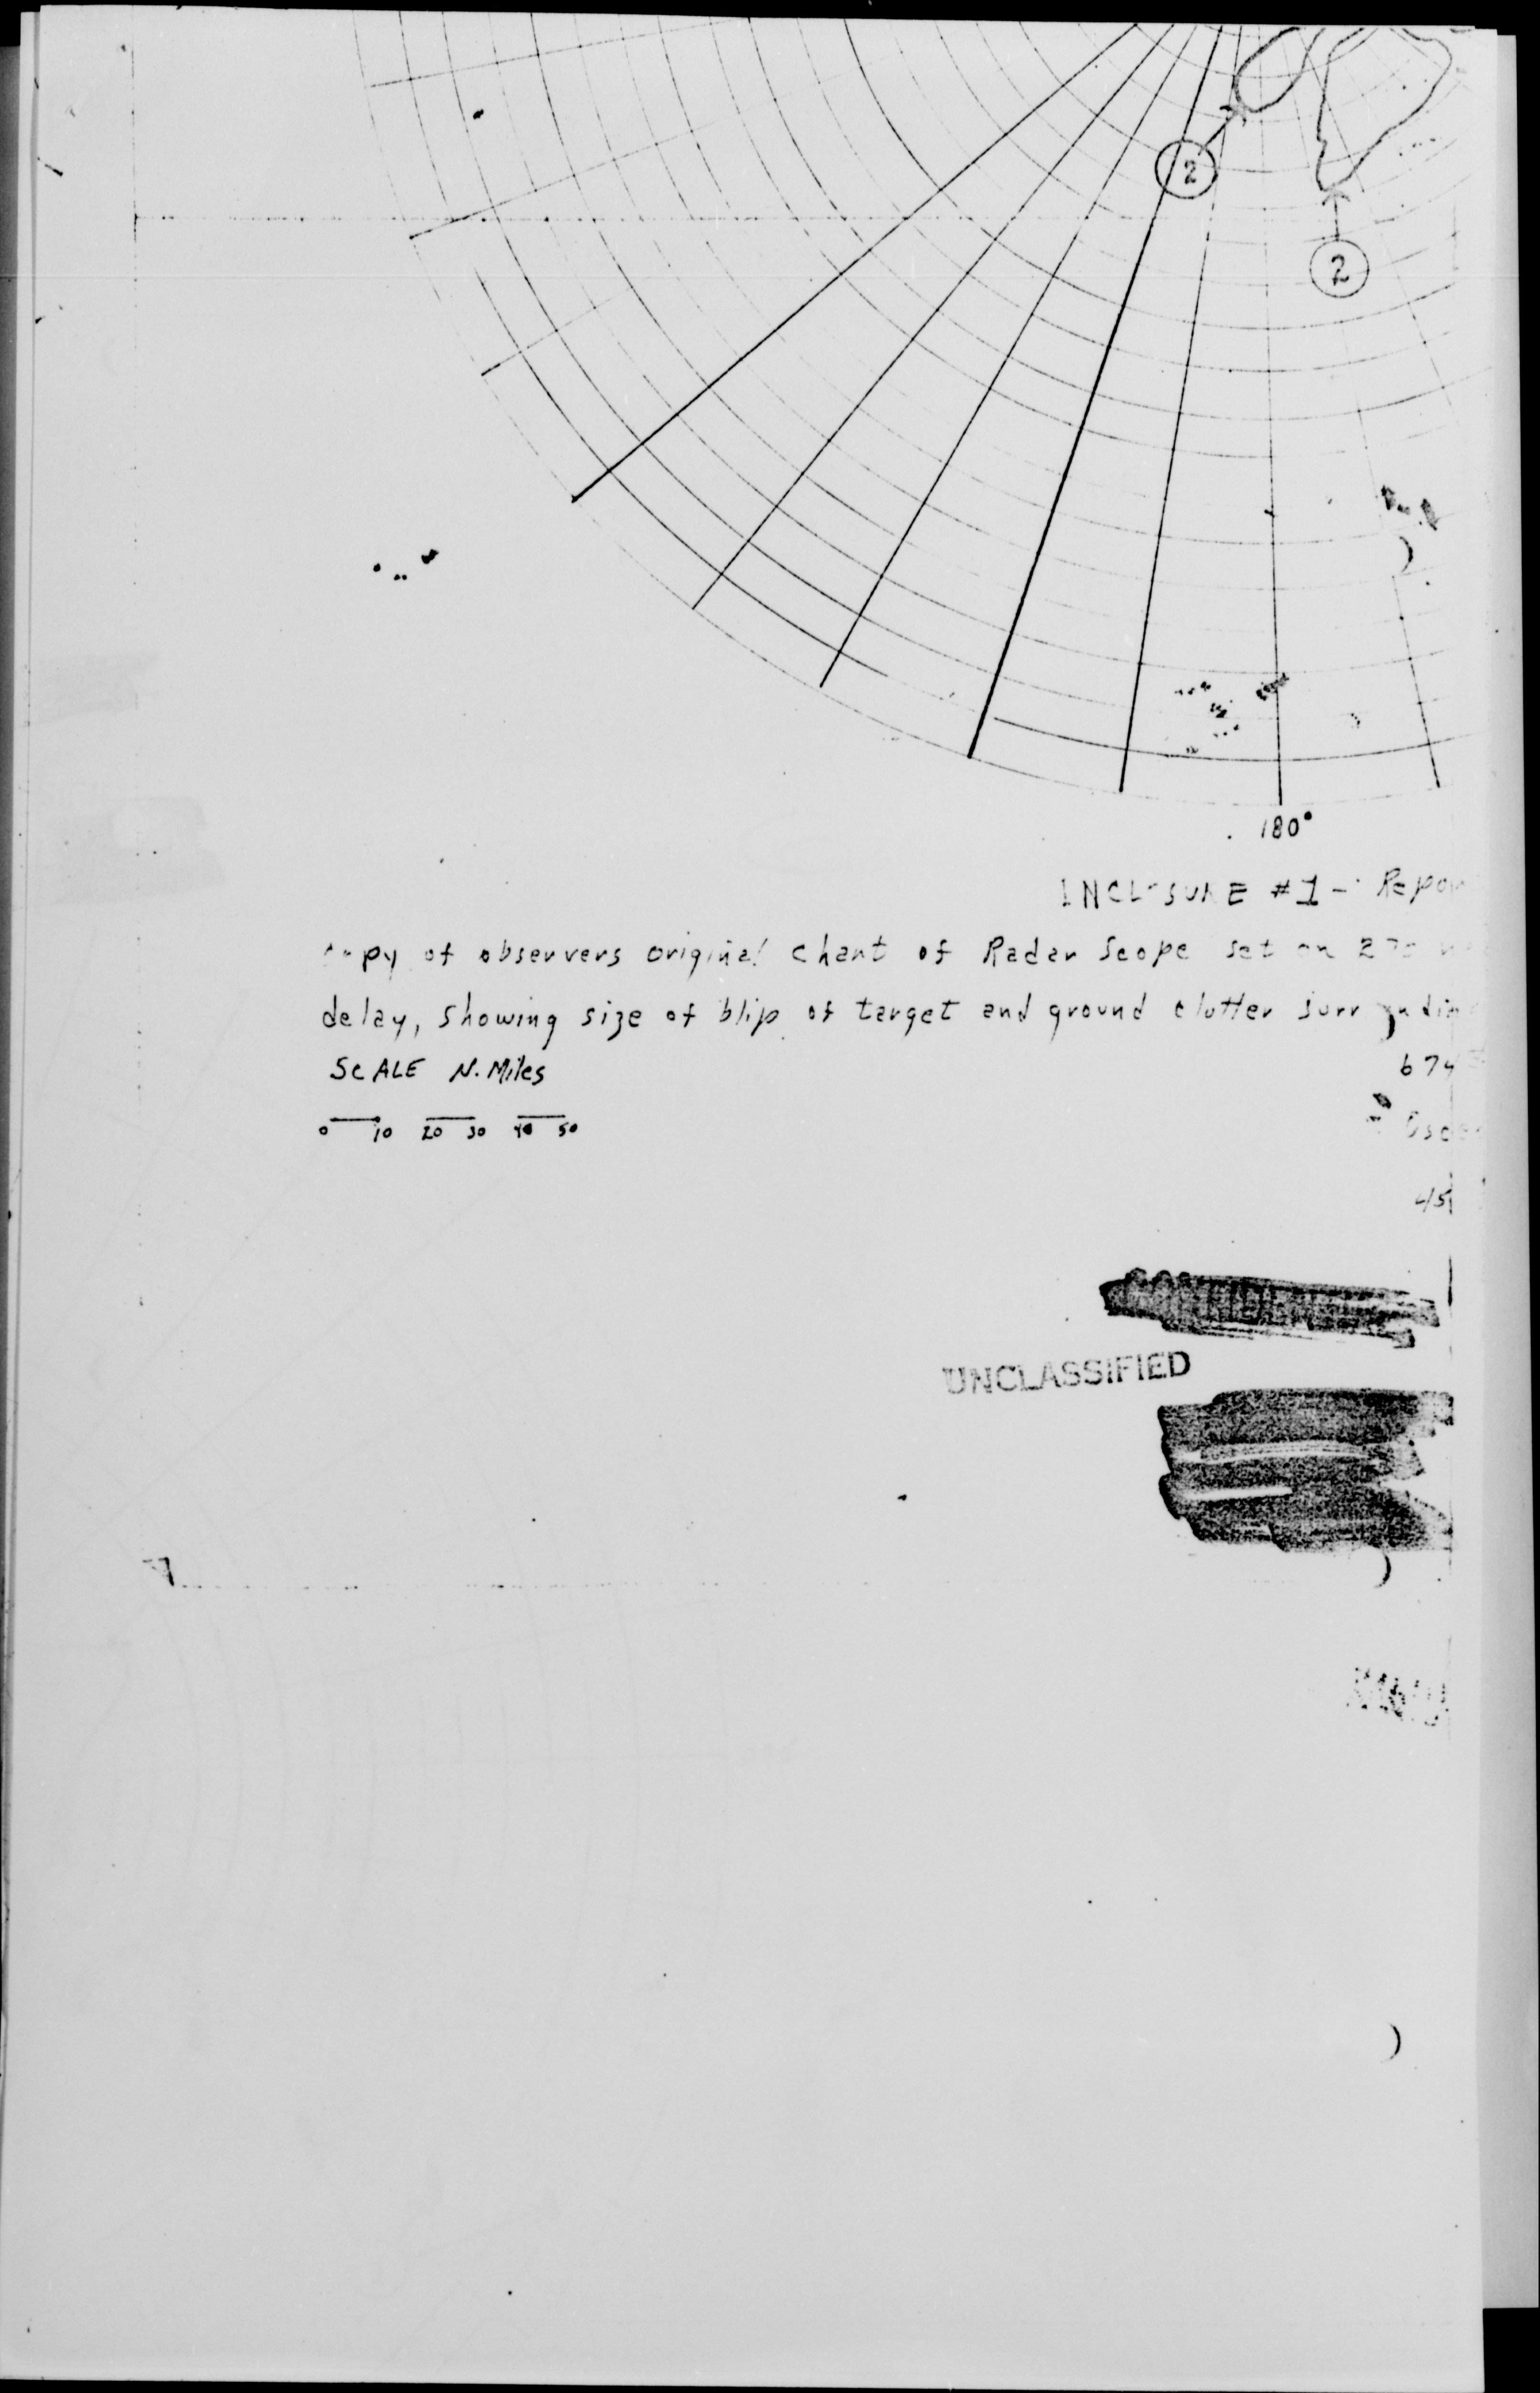 2
2
180°
INCLOSURE #1 - Repor
copy of observers original chart of Radar Scope set on
delay, showing size of blip of target and ground clutter
SCALE N. Miles
674
0 10 20 30 40 50
45
UNCLASSIFIED